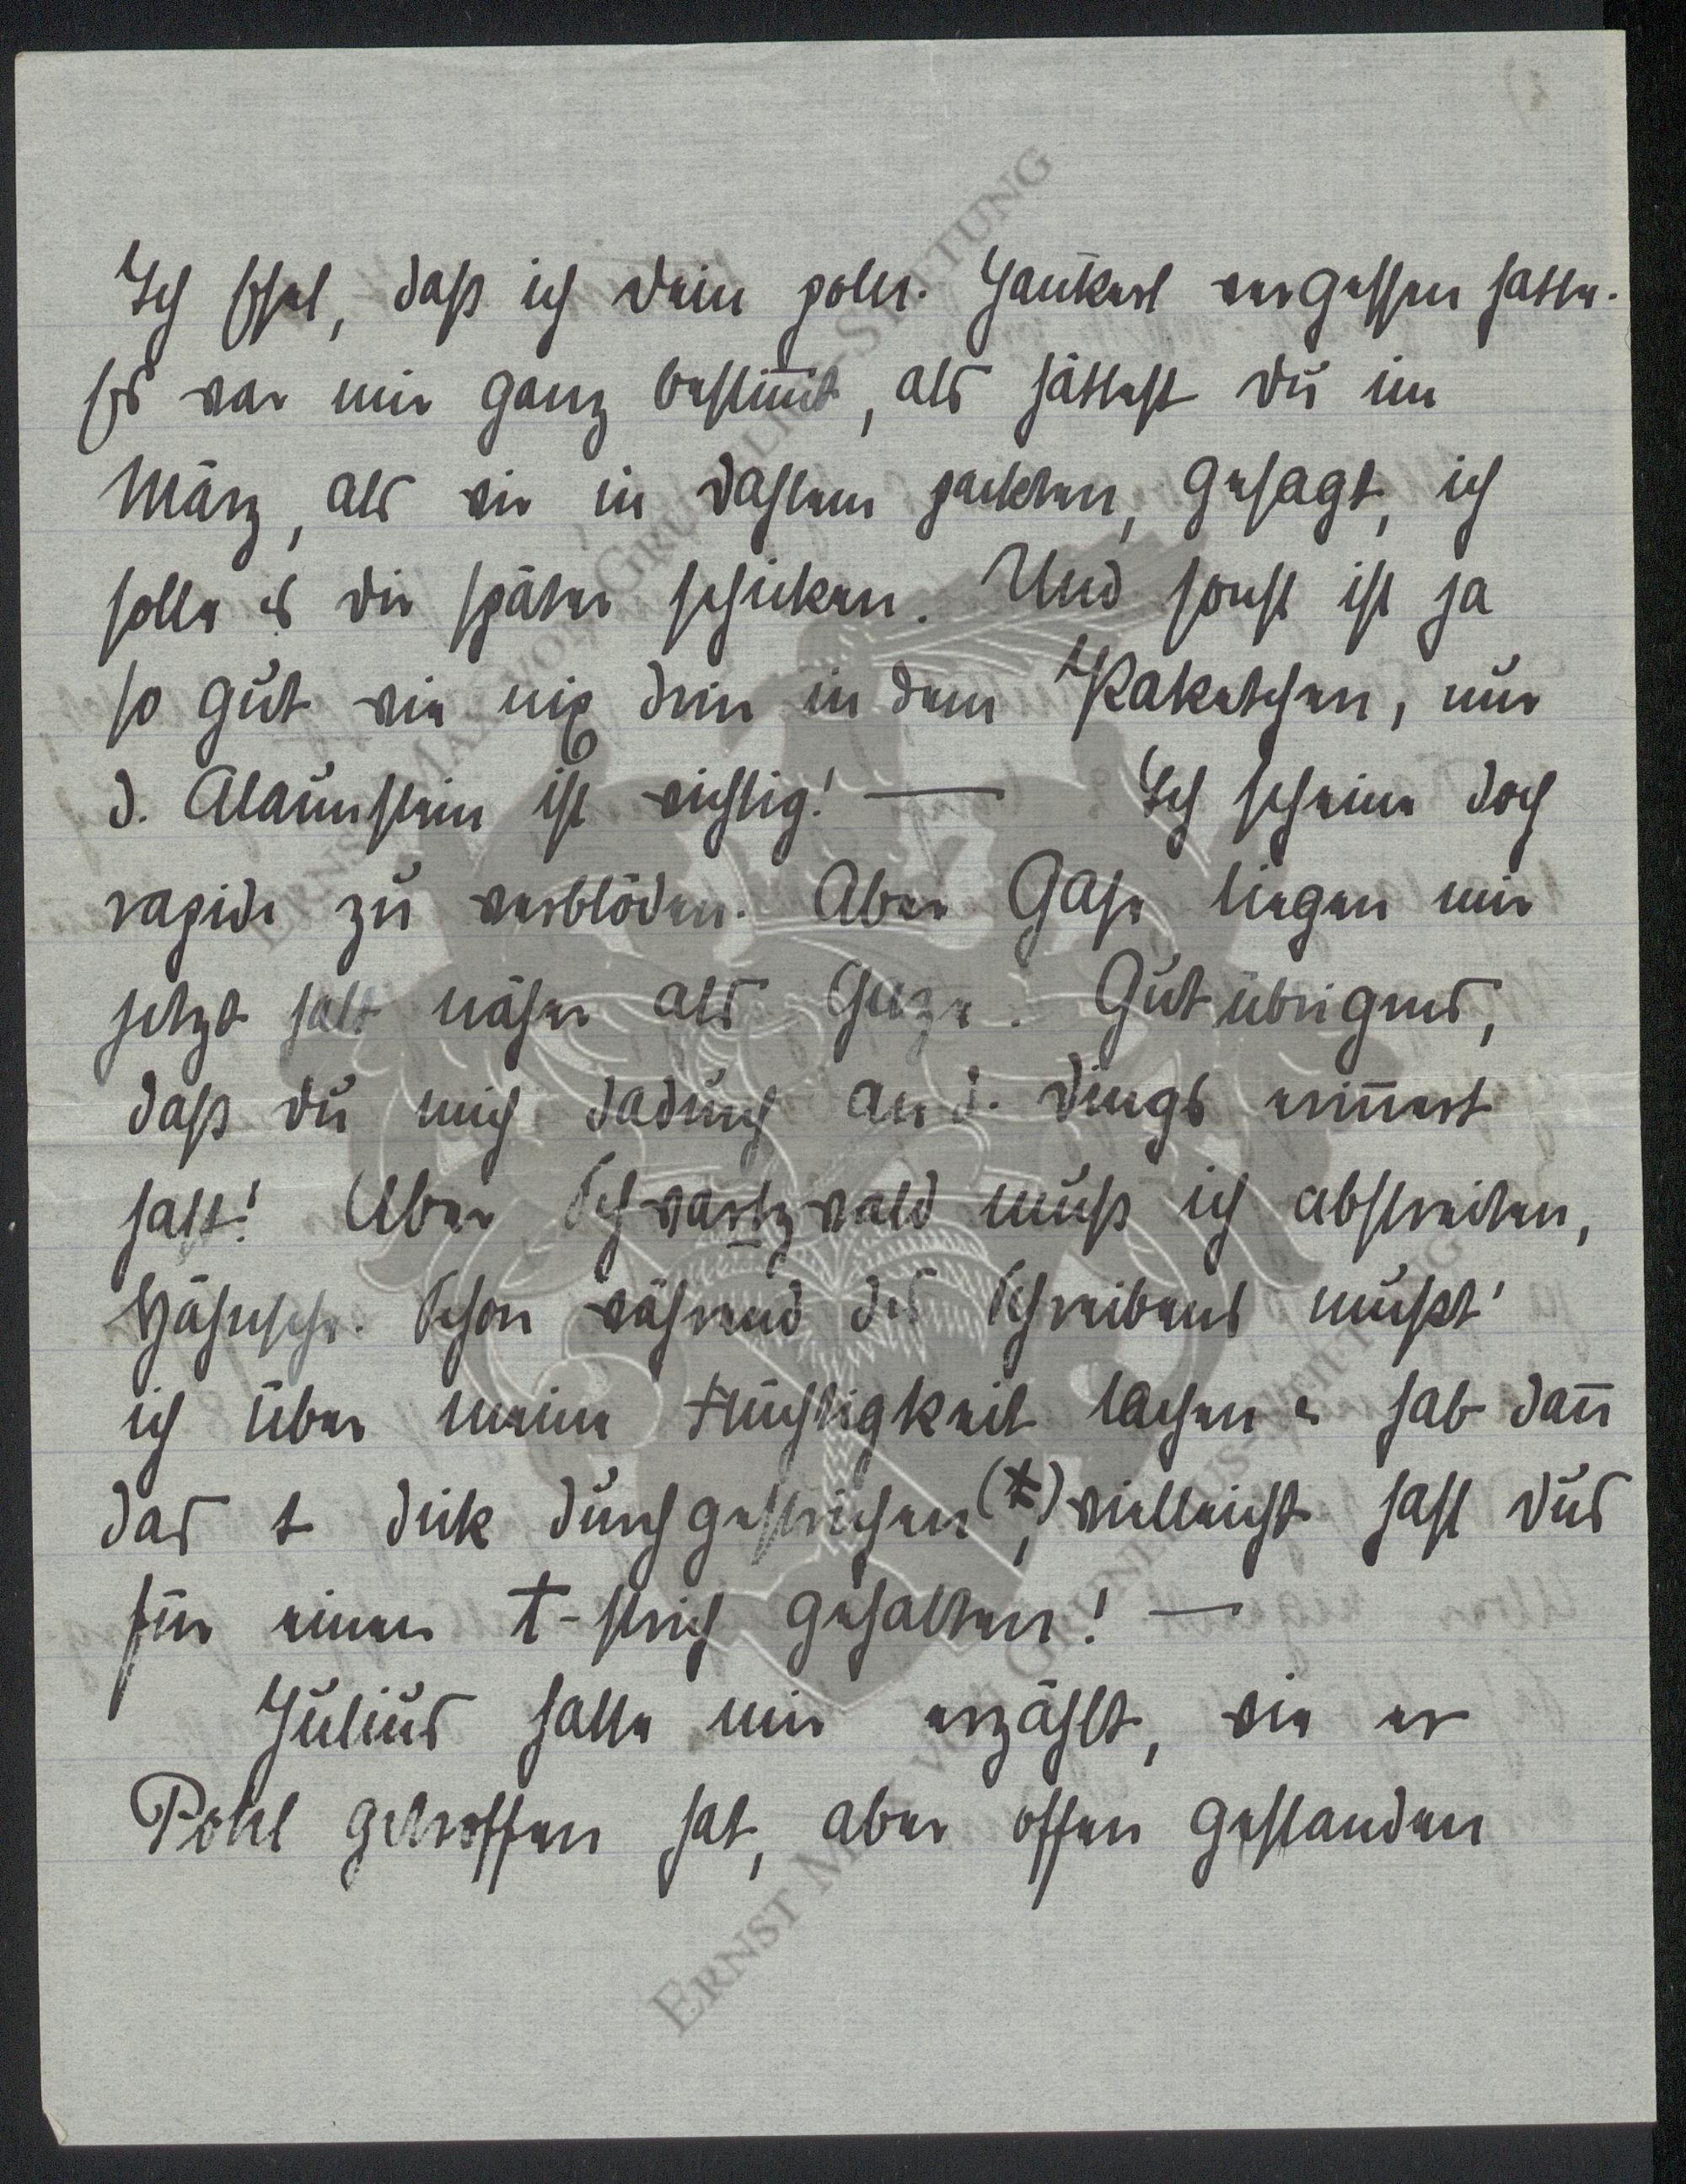 Ich Esel, daß ich Dein poln. Jankerl vergessen hatte.
Es war mir ganz bestim̄t, als hättest Du im
März, als wir in Dahlem packten, gesagt, ich
solle es Dir später schicken. Und sonst ist ja
so gut wie nix drin in dem Paketchen, nur
d. Alaunstein ist wichtig! — Ich scheine doch
rapide zu verblöden. Aber Gase liegen mir
jetzt halt näher als Gaze. Gut übrigens,
daß Du mich dadurch an d. Dings erin̄ert
hast! Aber Schwartzwald muß ich abstreiten,
Hähnsche. Schon während des Schreibens mußt'
ich über meine Flüchtigkeit lachen u hab dan̄
das t dick durchgestrichen (t), vielleicht hast Dus
für einen t-strich gehalten! —
Julius hatte mir erzählt, wie er
Pohl getroffen hat, aber offen gestanden
ERNST MAX VON GRUNELIUS-STIFTUNG
ERNST MAX VON GRUNELIUS-STIFTUNG